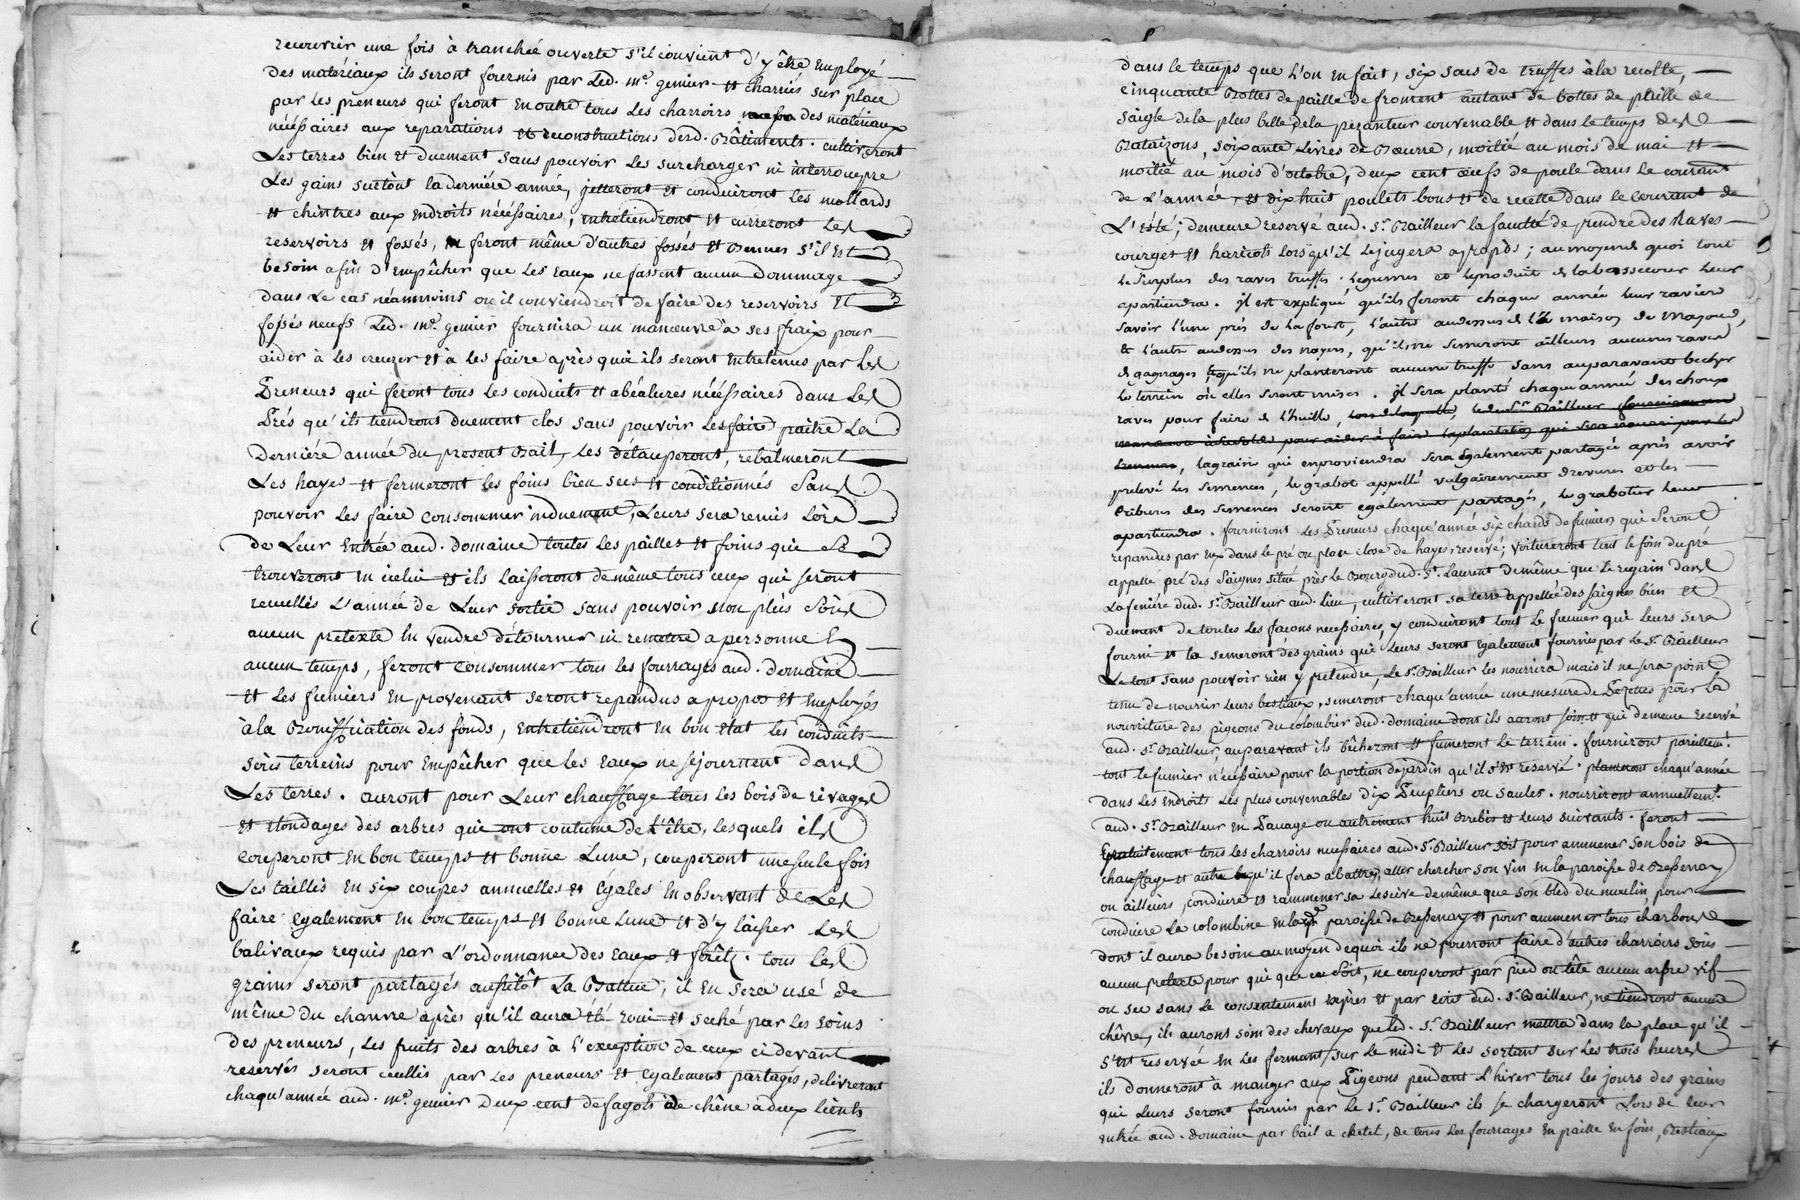 recouvrir une fois à tranchée ouverte s'il convient d'y être Employé
des materiaux ils seront fournis par Led. me. genier et charriés sur place
par les preneurs qui feront en outre tous les charroirs des matériaux
nécéssaires aux reparations et reconstructions desd. Bâtiments. cultiveront
Les terres bien et duement sans pouvoir les surcharger ni interroupre
Les gains surtout la derniére année, jetteront et conduiront les mottards
et chintres aux Endroits nécéssaires, entretiendront et curreront les
reservoirs et fossés, feront même d'autres fossés et Bennes s'il Est
besoin afin d'Empêcher que les Eaux ne fassent aucun dommage
dans Le cas néanmoins ou il conviendroit de faire des reservoirs et
fossés neufs Led. me. genier fournira un manœuvre à ses fraix pour
aider à les creuzer et à les faire après quoi ils seront Entretenus par les
Preneurs qui feront tous les conduits et abéalures nécéssaires dans les
Prés qu'ils tiendront duement clos sans pouvoir les faire paitre La
Derniére année du present Bail, Les détauperont, rebalmeront
Les hayes et fermeront les foins bien secs et conditionnés sans
pouvoir les faire consommer induement, Leurs sera remis Lors
de Leur Entrée aud. domaine toutes les pailles et foins qui se
trouveront En icelui et ils laisseront de même tous ceux qui seront
recuellis L'année de Leur sortie sans pouvoir non plus sous
aucun pretexte En vendre détourner ni remettre a personne En
aucun temps, feront consommer tous les fourrages aud. domaine
et les fumiers En provenant seront repandus a propos et Employés
à la Bonification des fonds, Entretiendront En bon Etat les conduits
soûs terreins pour Empêcher que les Eaux ne séjournent dans
Les terres. auront pour Leur chauffage tous les bois de rivages
et Elondages des arbres qui ont coutume de l'être, lesquels ils
couperont En bon temps et bonne Lune, couperont une seule fois
Les taillis En six coupes annuelles et Egales En observant de Les
faire Egalement En bon temps et bonne Lune et d'y laisser Les
balivaux requis par L'ordonnance des Eaux et forêts. tous les
grains seront partagés aussitôt La Battue, il En sera usé de
même du chanvre après qu'il aura été roui et seché par les soins
des preneurs, Les fruits des arbres à l'exception de ceux cidevant
reservés seront cuellis par Les preneurs et Egalement partagés, delivreront
chaqu'année aud. me. genier Deux cent de fagots de chêne a deux lients
dans le temps que L'on en fait, six sacs de truffes à la recolte,
cinquante Bottes de paille de froment autant de bottes de paille de
saigle de la plus belle de la pezanteur convenable et dans le temps des
Bataizons, soixante Livres de Bœurre, moitié au mois de mai et
moitié au mois d'octobre, deux cent œufs de poule dans Le courant
de L'année, et dix huit poulets bons et de recette dans le courant de
L'été; demeure reservé aud. sr. Bailleur la faculté de prendre des Raves
courges et haricots lorsqu'il le jugera a propos; au moyen de quoi tout
Le surplus des raves truffes. legumes et le produit de la bassecour leur
apartiendra. il est expliqué qu'ils feront chaque année leur ravier
savoir l'une près de la fouet, l'autre audessus de la maison de Magoud,
& l'autre audessus des noyers, qu'ils ne semeront ailleurs aucunes raves
et gagnages, & qu'ils ne planteront aucune truffe sans auparavant becher
le terrein où elles seront mises. il sera planté chaque année des choux
raves pour faire de l'huille, led. sr. Bailleur
pour aider à faire la plantation qui sera
, la grain qui en proviendra sera également partagé après avoir
prelevé les semences, le grabot appellé vulgairement drevures et les
cribures des semences seront également partagés, le grabotur leur
apartiendra. fourniront Les Preneurs chaqu'année six chards de fumier qui seront
repandus par Eux dans le pré ou place close de hayes, reservé; voitureront tout le foin du pré
appellé pré des saignes situé près Le Bourg dud. st. Laurent de même que Le regain dans
La feniére dud. sr. Bailleur aud. lieu, cultiveront sa terre appellée des saignes bien et
duement de toutes Les façons necessaires, y conduiront tout Le fumier qui Leurs sera
fourni et la semeront des grains qui Leurs seront également fournis par Le sr. Bailleur
Le tout sans pouvoir rien y pretendre, Le sr. Bailleur les nourrira mais il ne sera point
tenu de nourrir leurs bestiaux, semeront chaqu'année une mesure de Pezettes pour La
nourriture des pigeons du colombier dud. domaine dont ils auront soin et qui demeure reservé
aud. sr. Bailleur, auparavant ils bêcheront et fumeront Le terrein. fourniront pareillemt.
tout le fumier nécéssaire pour la portion de jardin qu'il s'est reservé. planteront chaqu'année
dans Les endroits Les plus convenables dix Peupliers ou saules. nourriront annuellemt.
aud. sr. Bailleur En Pavage ou autrement huit Brebis et Leurs suivants. feront
Gratuitement tous les charroirs necessaires aud. sr. Bailleur soit pour ammener son bois de
chauffage et autre qu'il fera abattre, aller chercher son vin En la paroisse de Bessenay
ou ailleurs, conduire et rammener sa Lessive de même que son bled du moulin, pour
conduire La colombine En lad. paroisse de Bessenay et pour ammener tous charbons
dont il aura besoin au moyen de quoi ils ne pourront faire d'autres charroirs sous
aucun pretexte pour qui que ce soit, ne couperont par pied ou tête aucun arbre vif
ou sec sans le consentement exprès et par ecrit dud. sr. Bailleur, ne tiendront aucune
chêvre, ils aurons soin des chevaux que led. sr. Bailleur mettra dans la place qu'il
s'est reservée En Les fermant sur Le midi et Les sortant sur Les trois heures
ils donneront à manger aux Pigeons pendant l'hiver tous les jours des grains
qui Leurs seront fournis par Le sr. Bailleur ils se chargeront Lors de leur
Entrée aud. domaine par bail a chetel, de tous Les fourrages En paille En foin, Bestiaux